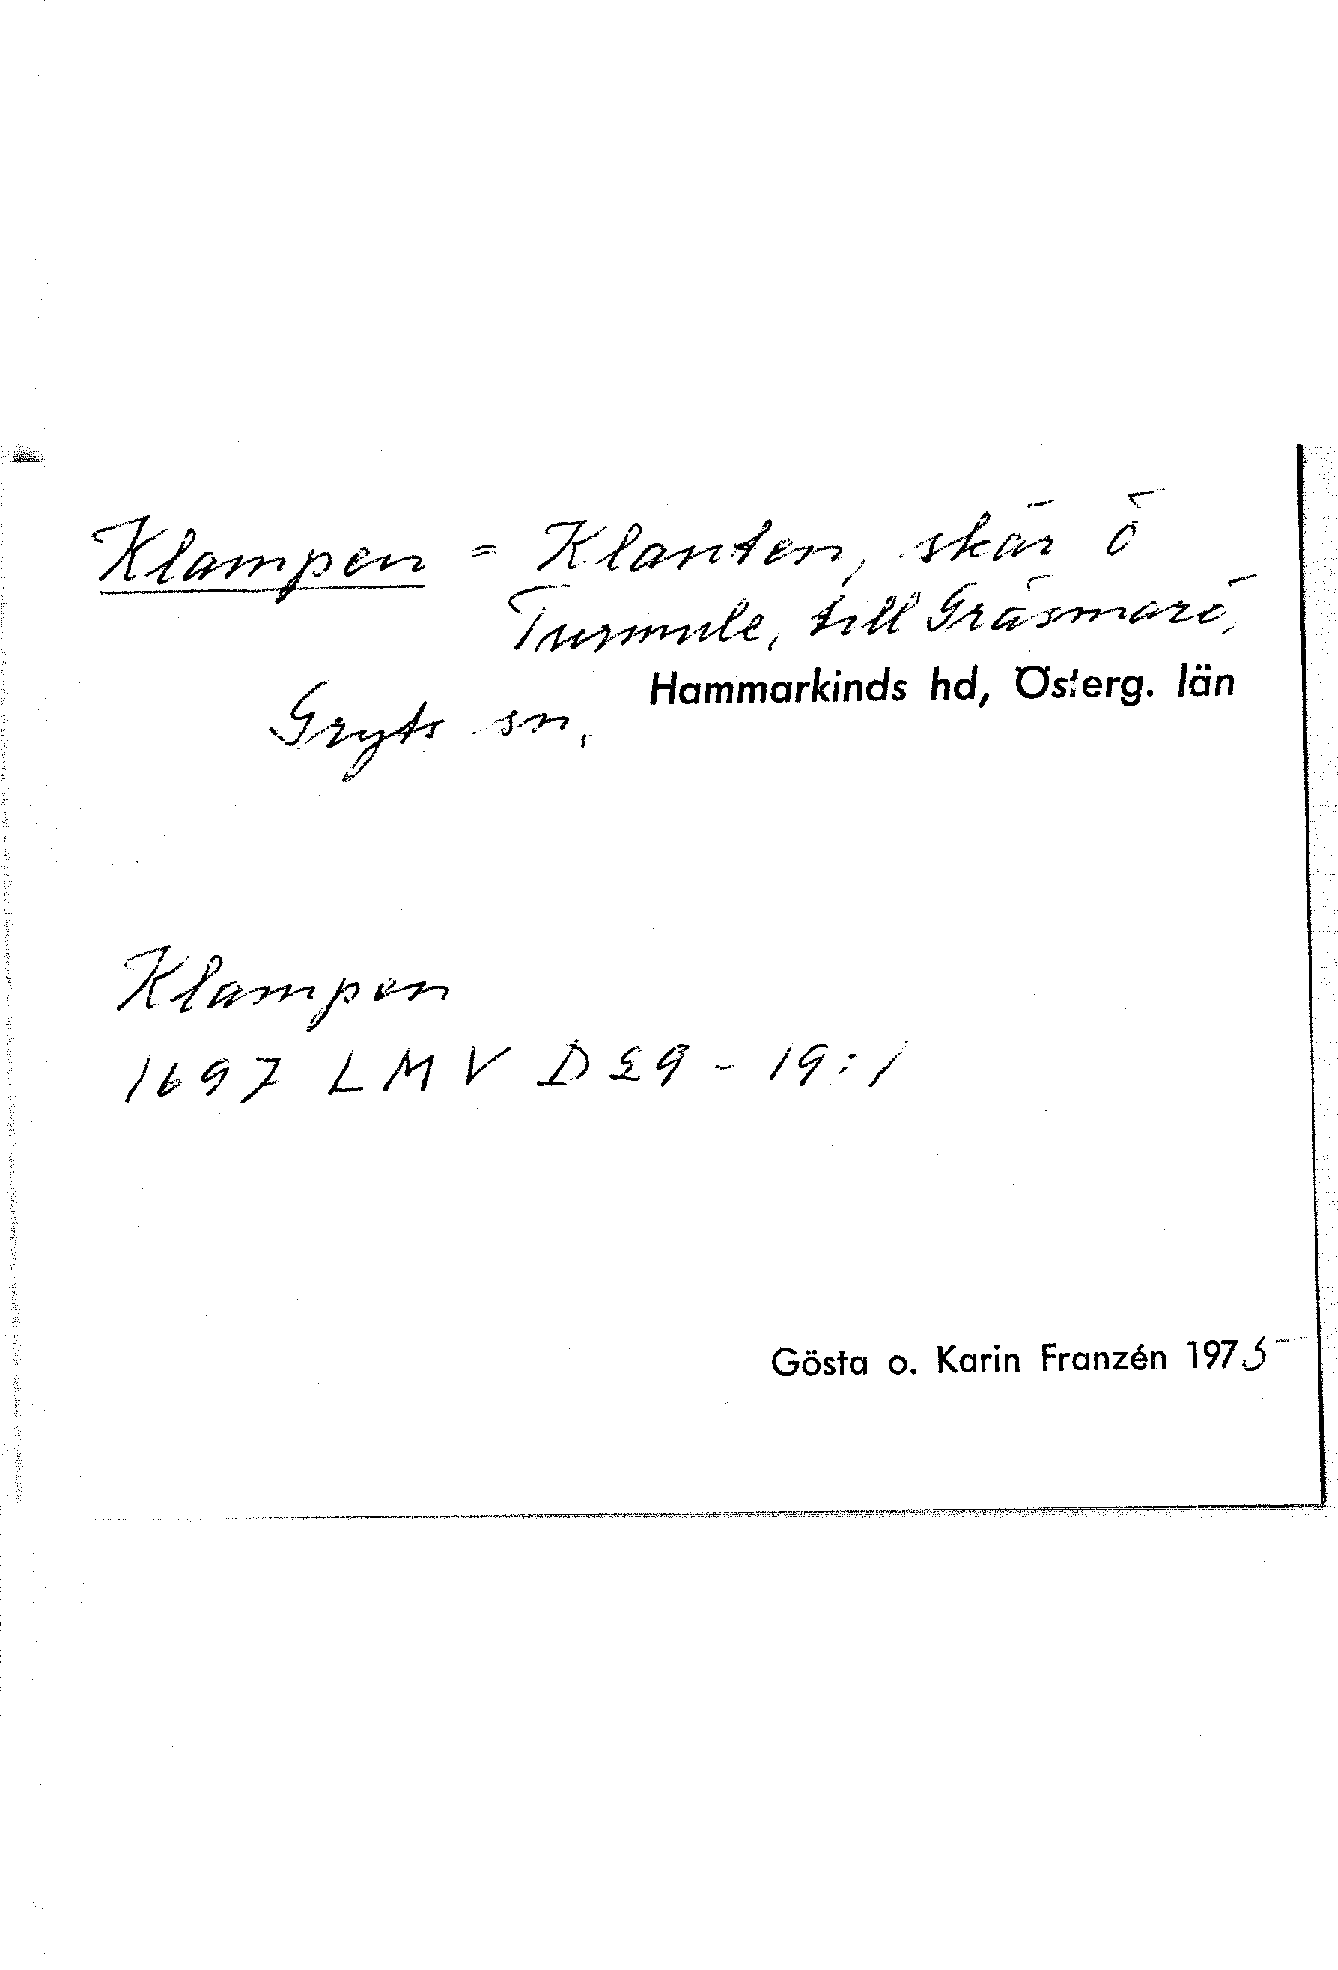 Klampen = Klanten, skär ö
Turmule, till Gräsmarö,
Gryts sn, Hammarkinds hd, Österg. län
Klampen
1697 LMV D £9 - 19:1
Gösta o. Karin Franzén 1975